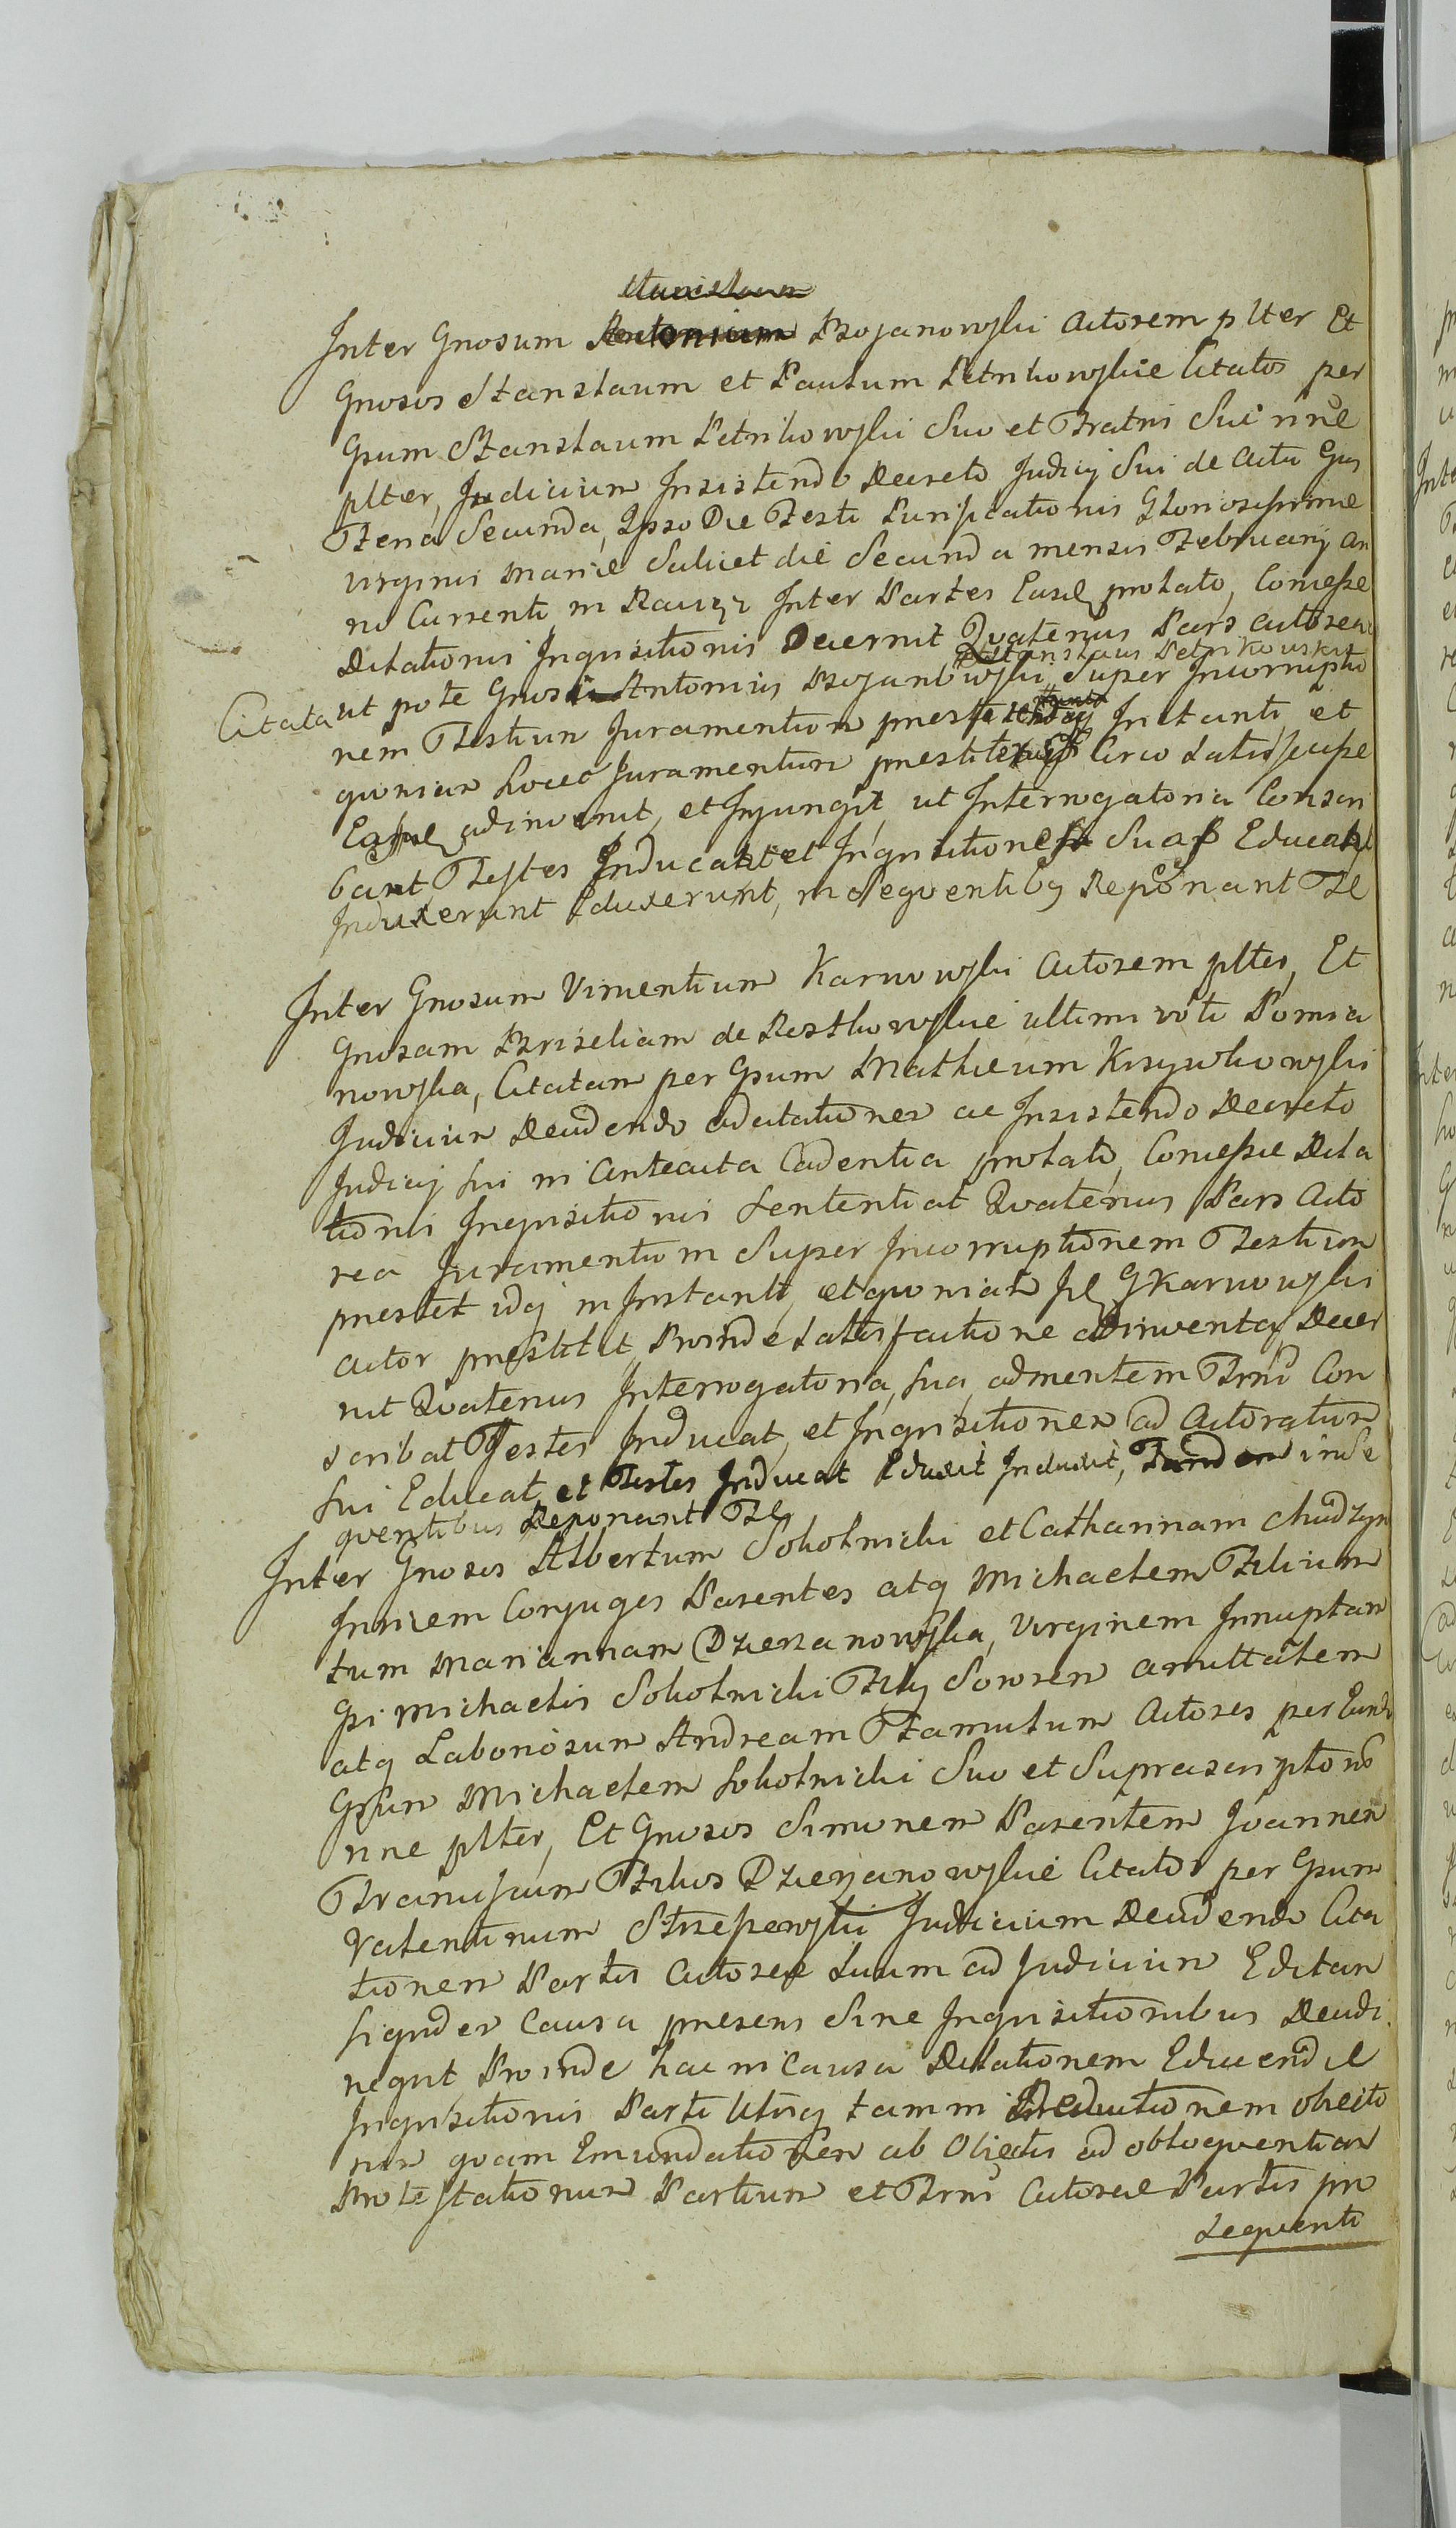 Inter Gnosum Bojanowski Actorem plter Et
Gnosos Stanslaum et Paulum Petrikowskie Citatos per
Gsum Stanslaum Petrikowski Suo et Fratris Sui nne
plter, Judicium Insistendo Decreto Judicij Sui de Actu
Feria Secunda, Ipso Die Festi Purificationis Gloriosissime
Virginis Marie Scilicet die Secunda mensis Februarij An
no Currenti in Inter Partes Easd prolato, Concesse
Dilationis Inquisitionis Decernit Quatenus Pars Actorea
Stanslaus Petrikowski
Citata ut pote Antonius Bojanowski Super Incorruptio
nem Testium Juramentum Instanti et
quoniam Juramentum Circo Satisfecisse
adinvenit, et Injungit, ut Interrogatoria Conscri
bant Testes Inducant et Inquisitiones Suas Educant
Induxerunt Eduxerunt, in Sequentibq Reponant
Inter Gnosum Vincentium Karwowski Actorem plter, Et
Gnosam de ultimi voti Pomia
nowska, Citatam per Gsum Matheum
Judicium Decidendo ad citationes ac Insistendo Decreto
Judicij Sui in Anteacta Cadentia prolato, Concesse Dila
tionis Inquisitionis Sententiat Quatenus Pars Acto
rea Juramentum Super Incorruptionem Testium
prestet idq in Instanti, et quoniam G Karwowski
Actor prestitit, Proinde Satisfactione adinventa, Decer
nit Quatenus Interrogatoria, sua, ad mentem Con
scribat Testes Inducat, et Inquisitiones ad Actoratum
Sui Educat, et Testes Inducat Eduxit Induxit, inse
quentibus Reponant
Inter Gnosos Albertum Sokolnicki et Catharinam Chudzyn
Invicem Conjuges Parentes atq Michaelem Filium
tum Mariannam Dzierzanowska, Virginem Innuptam
Gsi Michaelis Sokolnicki Filij Sororem
atq Laboriosum Andream Famulum Actores per Eund
Gsum Michaelem Sokolnicki Suo et Suprascriptorū
nne plter, Et Gnosos Simonem Parentem Joannem
Franciscum Filios Dzierzanowskie Citatos per Gsum
Valentinum Judicium Decidendo Cita
tionem Partis Actoree Suum ad Judicium Editam
siquidem Causa presens Sine Inquisitionibus Decidi
nequit, Proinde hac in Causa Dilationem Educende
Inquisitionis Parti Utriq tam in Deductionem obiecto
rum quam Emundationem ab Obiectis ad obloquentiam
Protestationum Partium et Actoree Partis pro
Sequenti